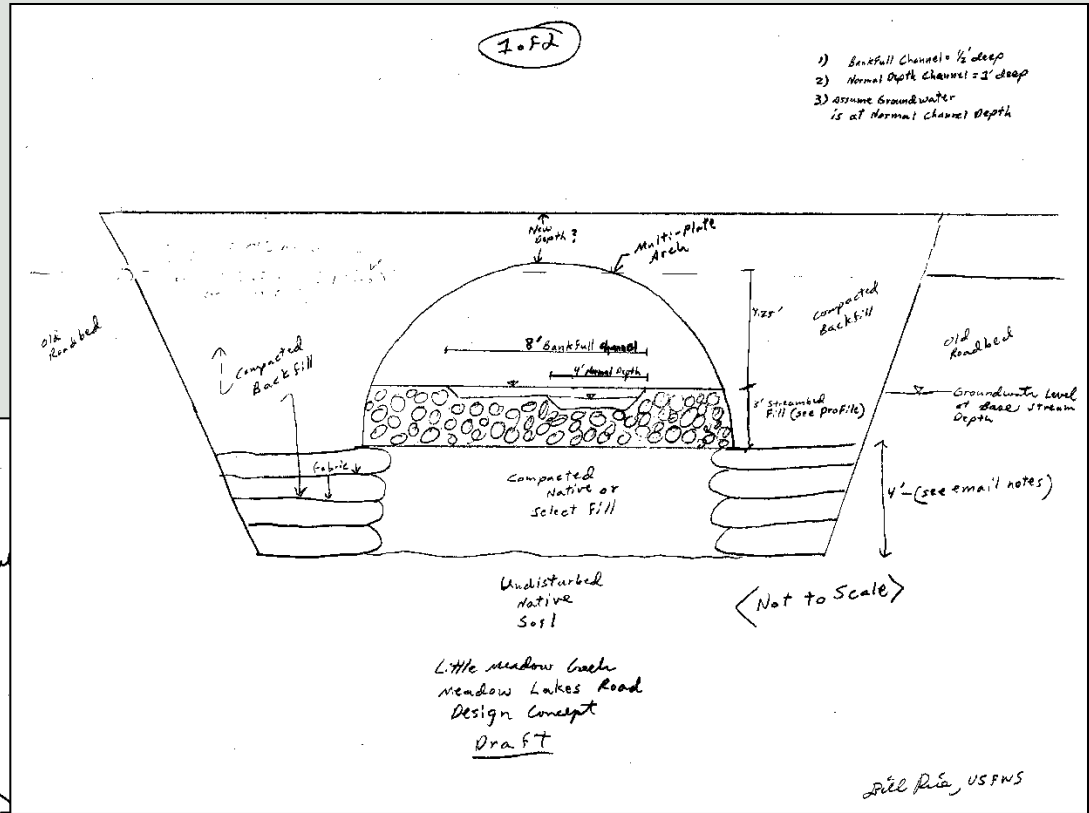 1 of 2
1) Bankfull Channel = 1/2' deep
2) Normal Depth Channel = 1' deep
3) Assume Groundwater
is at Normal Channel Depth
New
Depth?
Multi-Plate
Arch
Old
Roadbed
Compacted
Backfill
8' Bankfull Channel
4' Normal Depth
Compacted
Backfill
Old
Roadbed
3' Streambed
Fill (see profile)
Groundwater Level
at Base Stream
Depth
Fabric
Compacted
Native or
Select Fill
4' - (see email notes)
Undisturbed
Native
Soil
<Not to Scale>
Little Meadow Creek
Meadow Lakes Road
Design Concept
Draft
Bill Rice, USFWS